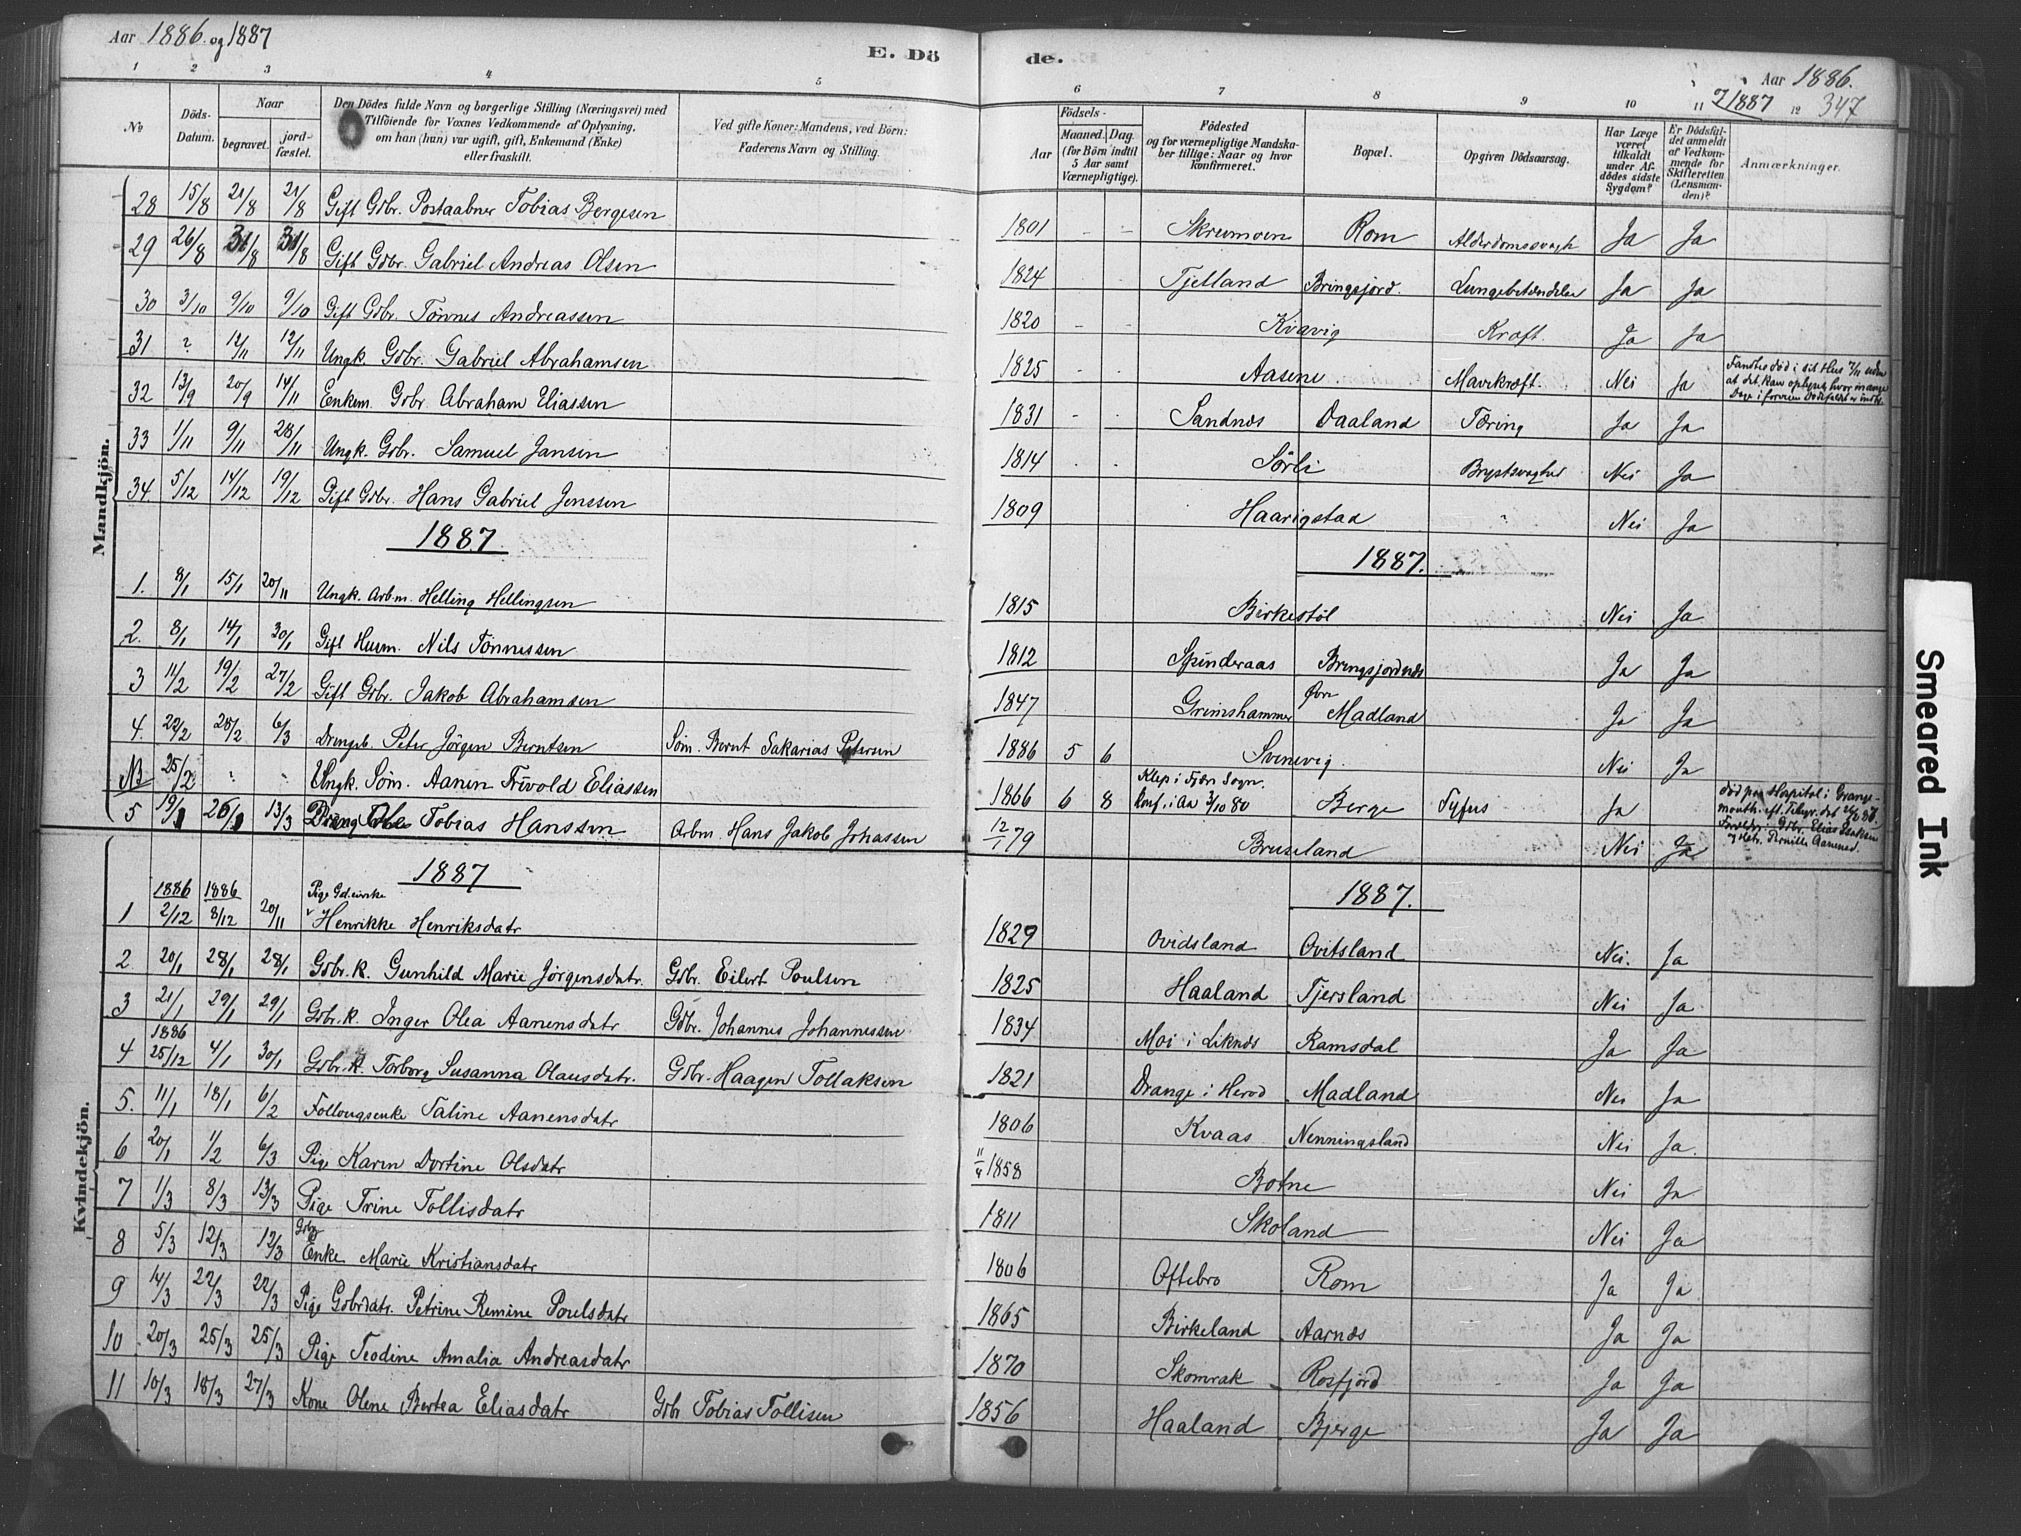 Aar 1886. og 1887
E. Dö
1 2 3 4 5
No
Döds-
Datum.
Naar
begravet.
jord-
fæstet.
Den Dödes fulde Navn og borgerlige Stilling (Næringsvei) med
Tilföiende for Voxnes Vedkommende af Oplysning,
om han (hun) var ugift, gift, Enkemand (Enke)
eller fraskilt.
Ved gifte Koner: Mandens, ved Börn:
Faderens Navn og Stilling.
Mandkjön.
28 15/8 21/8 21/8 Gift Gbr. Postaabner Tobias Bergesen
29 26/8 31/8 31/8 Gift Gbr. Gabriel Andreas Olsen
30 3/10 9/10 9/10 Gift Gbr. Tönnes Andreassen
31 ? 12/11 12/11 Ungk. Gbr. Gabriel Abrahamsen
32 13/9 20/9 14/11 Enkem. Gbr. Abraham Eliassen
33 1/11 9/11 28/11 Ungk. Gbr. Samuel Jansen
34 5/12 14/12 19/12 Gift Gbr. Hans Gabriel Jenssen
1887.
1. 8/1 15/1 20/11 Ungk. Arbm. Helling Hellingsen
2. 8/1 14/1 30/1 Gift Husm. Nils Tönnessen
3 11/2 19/2 27/2 Gift Gbr. Jakob Abrahamsen
4. 22/2 28/2 6/3 Drengeb. Peter Jörgen Berntsen Söm. Bernt Sakarias Petersen
NB 25/2 Ungk. Söm. Aanen Trivold Eliassen
5 13/3 Dreng Tobias Hanssen Arbm Hans Jakob Johassen
Kvindekjön.
1887
1 1886 2/12 1886 8/12 20/11 Pige Henrikke Henriksdatr
2 20/1 28/1 28/1 Gbr. K. Gunhild Marie Jörgensdatr. Gbr. Eilert Poulsen
3 21/1 29/1 29/1 Gbr. K. Inger Olea Aanensdatr Gbr. Johannes Johannessen
4 1886 25/12 4/1 30/1 Gbr. K. Torborg Susanna Olausdatr. Gbr. Haagen Tollaksen
5. 11/1 18/1 6/2 Taline Aanensdatr
6 20/1 1/2 6/3 Pige Karen Dortine Olsdatr
7 1/3 8/3 13/3 Pige Trine Tollisdatr
8 5/3 12/3 12/3 Gbr Enke Marie Kristiansdatr
9 14/3 22/3 22/3 Pige Gbrdatr. Petrine Remine Poulsdatr
10 20/3 25/3 25/3 Pige Teodine Amalia Andreasdatr
11 10/3 18/3 27/3 Kone Olene Bertea Eliasdatr Gbr Tobias Tollisen
de.
Aar 1886.
1887 347
6 7 8 9 10 11 12
Födsels-
Aar
Maaned. Dag.
(for Börn indtil
5 Aar samt
Værnepligtige).
Födested
og for værnepligtige Mandska-
ber tillige: Naar og hvor
konfirmeret.
Bopæl.
Opgiven Dödsaarsag.
Har Læge
været
tilkaldt
under Af-
dödes sidste
Sygdom?
Er Dödsfal-
det anmeldt
af Vedkom-
mende for
Skifteretten
(Lensman-
den)?
Anmærkninger.
1801 - - Skreumoen Rom Alderdomssvagh Ja Ja
1824 Tjelland Bringsjord. Lungebetændelse Ja Ja
1820 - - Kvavig Kræft. Ja Ja
1825 - - Aasene. Mavekræft. Nei Ja
Fandtes död i sit Hus 7/11 uden
at det kan oplyses hvor mange
Dage i forveien
1831 - - Sandnæs Daaland Tæring Ja Ja
1814 - - Sörli Brystsvaghed Nei Ja
1809 Haarigstad " Nei Ja
1887.
1815 Birkestöl Nei Ja
1812 Spinderaas Bringsjordnæs Ja Ja
1847 Grimshammer Öbr Madland Ja Ja
1886 5 6 Svenevig. Nei Ja
1866 6 8 Klep i Fjære Sogn. Konf. i Aa 3/10 80 Berge Tyfus Ja
död paa Hospital i Grange-
mouth
Gbr. Elias
Pernille Aanensd.
12/1 79 Bruseland Nei Ja
1887.
1829 Ovidsland Ovitsland Nei. Ja
1825 Haaland Tjersland Nei Ja.
1834 Moi i Liknæs Ramsdal Ja Ja
1821 Drange i Herod Madland Nei Ja
1806 Kvaas Nenningsland Nei Ja.
1858 Botne Nei Ja
1811 Skoland Nei Ja
1806 Oftebro Rom Ja Ja
1865 Birkeland Aarnæs Ja Ja
1870 Skomrak Rosfjord Ja Ja
1856 Haaland Bjerge Ja Ja
Smeared Ink